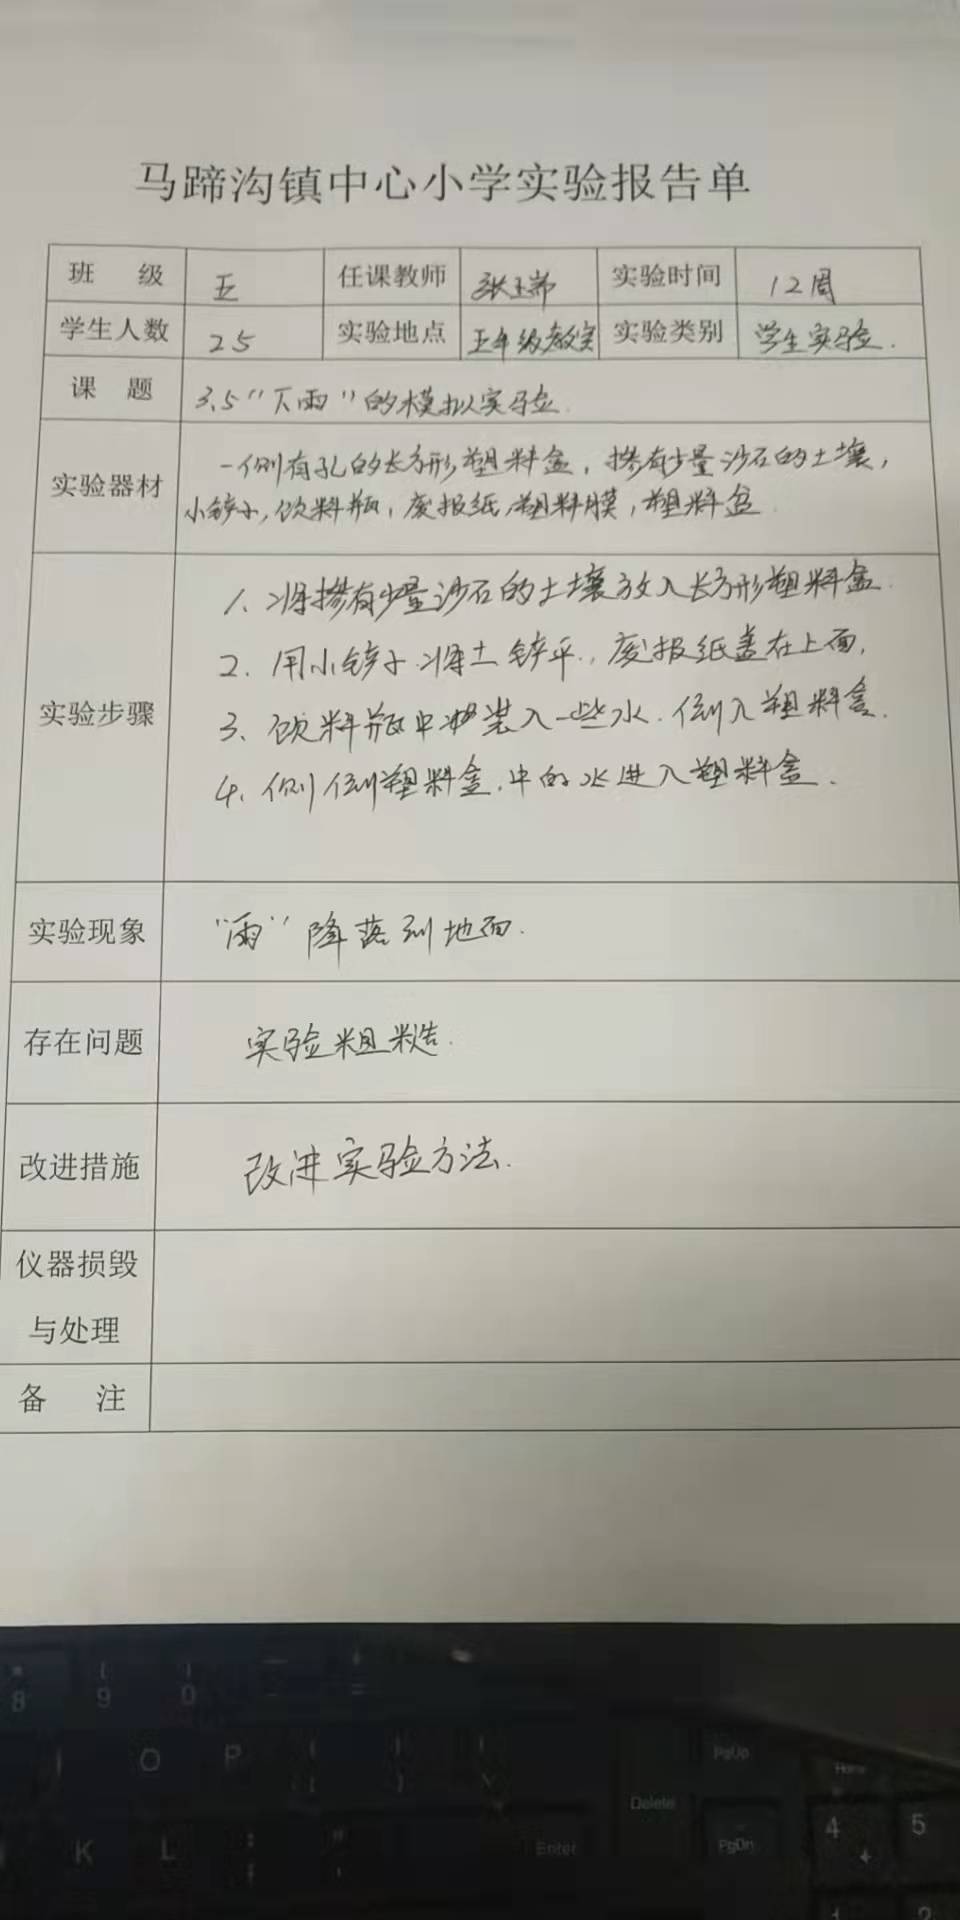 马蹄沟镇中心小学实验报告单
班 级 五 任课教师 张玉
实验时间 12周
学生人数 25 实验地点 五年级教室 实验类别 学生实验.
课 题 3.5“下雨”的模拟实验.
实验器材
一侧有孔的长方形塑料盒,掺有少量沙石的土壤,
小铲子,饮料瓶,废报纸,塑料膜,塑料盆.
实验步骤
1、将掺有少量沙石的土壤放入长方形塑料盒.
2、用小铲子将土铲平.,废报纸盖在上面.
3、饮料瓶中装入一些水.倒入塑料盒.
4、侧倒塑料盒.中的水进入塑料盒.
实验现象 “雨”降落到地面.
存在问题 实验粗糙.
改进措施 改进实验方法.
仪器损毁
与处理
备 注
8 9 0 - =
O P
K L
Enter
Delete
PgUp
PgDn
Home
4 5
1 2